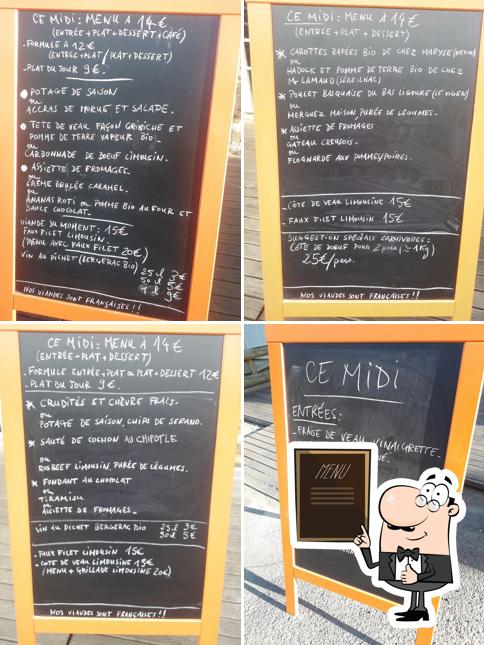 CE MIDI: MENU A 14€
(ENTRÉE+PLAT+DESSERT+CAFÉ)
-FORMULE A 12€
(ENTRÉE+PLAT/PLAT+DESSERT)
-PLAT DU JOUR 9€.
● POTAGE DE SAISON
ou
ACCRAS DE MORUE ET SALADE.
● TETE DE VEAU FAÇON GRIBICHE ET
POMME DE TERRE VAPEUR BIO
ou
CARBONNADE DE BOEUF LIMOUSIN.
● ASSIETTE DE FROMAGES
ou
CRÈME BRULÉE CARAMEL.
ou
ANANAS ROTI ou POMME BIO AU FOUR ET
SAUCE CHOCOLAT.
VIANDE DU MOMENT: 15€
FAUX FILET LIMOUSIN.
(MENU AVEC FAUX FILET 20€)
VIN AU PICHET (BERGERAC BIO)
25cl 3€
50cl 5€
1l 9€
NOS VIANDES SONT FRANÇAISES!!
CE MIDI: MENU À 14€
(ENTRÉE+PLAT+DESSERT)
* CAROTTES RAPÉES BIO DE CHEZ MARYSE
ou
HADOCK ET POMME DE TERRE BIO DE CHEZ
Mr LAMAUD
* POULET BASQUAISE DU BAS LIGOURE (LE VIGEN)
ou
MERGUEZ MAISON, PURÉE DE LÉGUMES.
* ASSIETTE DE FROMAGES
ou
GATEAU CREUSOIS.
ou
FLOGNARDE AUX POMMES/POIRES.
-CÔTE DE VEAU LIMOUSINE 15€
FAUX FILET LIMOUSIN 15€
SUGGESTION SPÉCIALE CARNIVORES:
CÔTE DE BOEUF POUR 2 pers (≃1Kg)
25€/pers.
NOS VIANDES SONT FRANÇAISES!!
CE MIDI: MENU À 14€
(ENTRÉE+PLAT+DESSERT)
-FORMULE ENTRÉE+PLAT ou PLAT+DESSERT 12€
-PLAT DU JOUR 9€.
* CRUDITÉS ET CHÈVRE FRAIS.
ou
POTAGE DE SAISON, CHIPS DE SERANO.
* SAUTÉ DE COCHON AU CHIPOTLE
ou
ROSBEEF LIMOUSIN, PURÉE DE LÉGUMES.
* FONDANT AU CHOCOLAT
ou
TIRAMISU
ou
ASSIETTE DE FROMAGES.
VIN AU PICHET BERGERAC BIO 25cl 3€
50cl 5€
-FAUX FILET LIMOUSIN 15€
-COTE DE VEAU LIMOUSINE 15€
(MENU + GRILLADE LIMOUSINE 20€)
NOS VIANDES SONT FRANÇAISES!!
CE MIDI
ENTRÉES:
-FRAISE DE VEAU VINAIGRETTE.
MENU